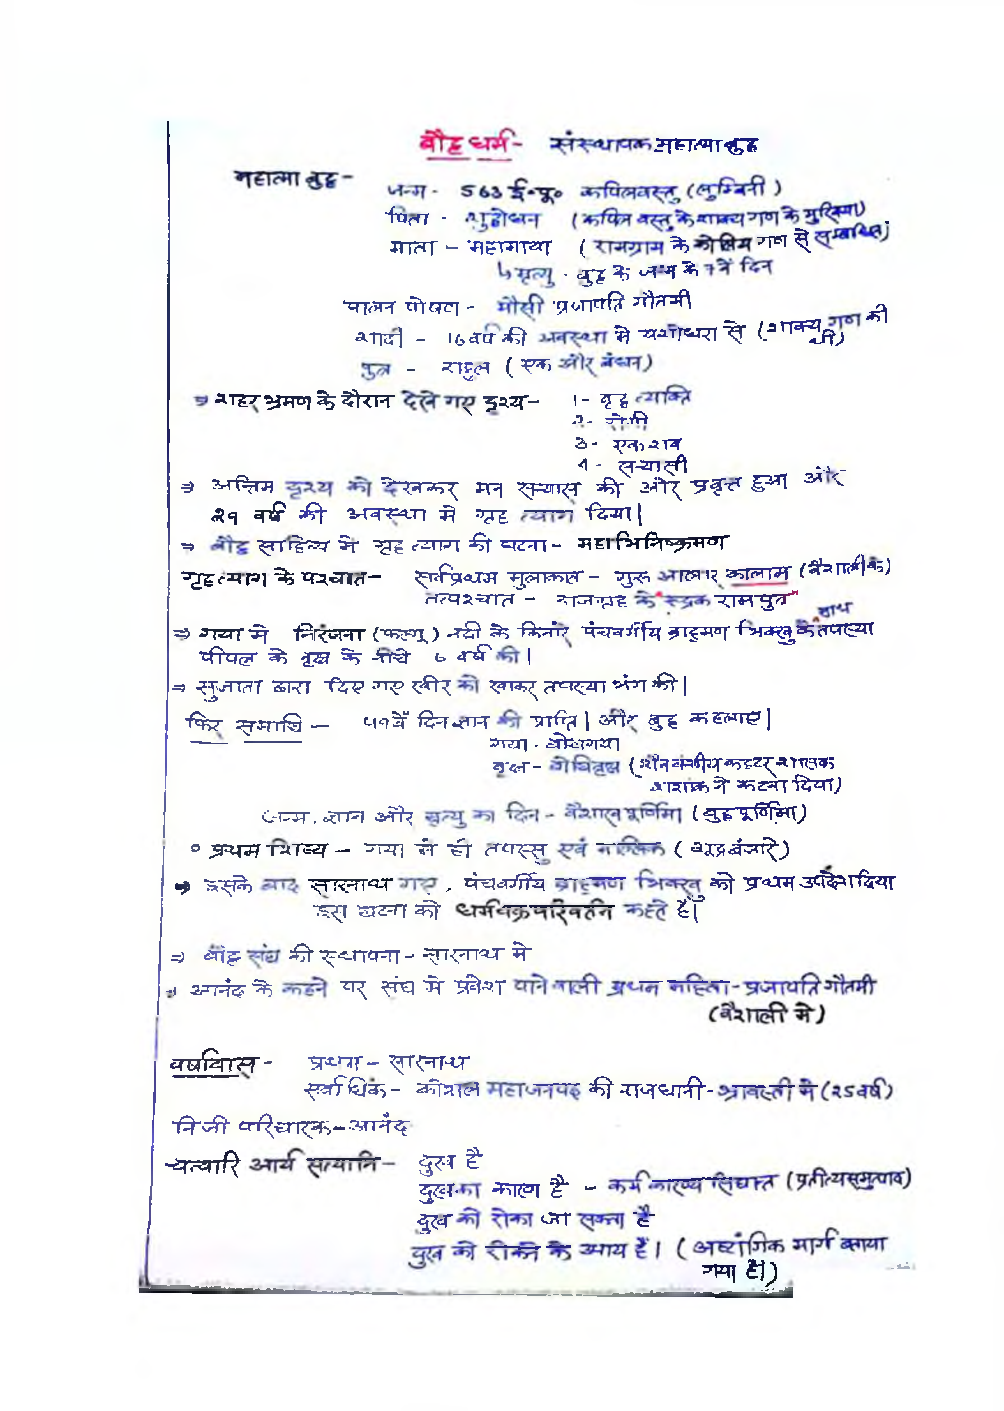 बौद्ध धर्म - संस्थापक महात्मा बुद्ध
महात्मा बुद्ध -
जन्म - 563 ई०पू० कपिलवस्तु (लुम्बिनी)
पिता - शुद्दोधन (कपिल वस्तु के शाक्य गण के मुखिया)
माता - महामाया (रामग्राम के कोलिय गण से सम्बन्धित)
↳ मृत्यु - बुद्ध के जन्म के 7वें दिन
पालन पोषण - मौसी प्रजापति गौतमी
शादी - 16 वर्ष की अवस्था मे यशोधरा से (शाक्य गण की थी)
पुत्र - राहुल (एक और बंधन)
⇒ शहर भ्रमण के दौरान देखे गए दृश्य - 1- वृद्ध व्यक्ति
2- रोगी
3- एक शव
4- सन्यासी
⇒ अन्तिम दृश्य को देखकर मन सन्यास की ओर प्रवृत्त हुआ और
29 वर्ष की अवस्था मे गृह त्याग दिया|
⇒ बौद्ध साहित्य मे गृह त्याग की घटना - महाभिनिष्क्रमण
गृह त्याग के पश्चात - सर्वप्रथम मुलाकात - गुरू आलार कालाम (वैशाली के)
तत्पश्चात - राजगृह के "रूद्रक रामपुत्र"
⇒ गया मे निरंजना (फल्गु) नदी के किनारे पंचवर्गीय ब्राह्मण भिक्खु के साथ तपस्या
पीपल के वृक्ष के नीचे 6 वर्ष की |
⇒ सुजाता द्वारा दिए गए खीर को खाकर तपस्या भंग की|
फिर समाधि - 49वें दिन ज्ञान की प्राप्ति | और बुद्ध कहलाए|
गया - बोधगया
वृक्ष - बोधिवृक्ष (शैव वंशीय कट्टर शासक
शशांक ने कटवा दिया)
जन्म, ज्ञान और मृत्यु का दिन - वैशाख पूर्णिमा (बुद्ध पूर्णिमा)
० प्रथम शिष्य - गया मे ही तपस्सु एवं मल्लिक (शूद्र बंजारे)
⇒ इसके बाद सारनाथ गए, पंचवर्गीय ब्राह्मण भिक्खु को प्रथम उपदेश दिया
इस घटना को धर्मचक्रपरिवर्तन कहते हैं|
⇒ बौद्ध संघ की स्थापना - सारनाथ मे
⇒ आनंद के कहने पर संघ मे प्रवेश पाने वाली प्रथम महिला - प्रजापति गौतमी
(वैशाली मे)
वर्षावास - प्रथम - सारनाथ
सर्वाधिक - कोशल महाजनपद की राजधानी - श्रावस्ती मे (25 वर्ष)
निजी परिचारक - आनंद
चत्वारि आर्य सत्यानि - दुख है
दुख का कारण है - कर्म कारण सिद्धान्त (प्रतीत्यसमुत्पाद)
दुख को रोका जा सकता है
दुख को रोकने के उपाय हैं। (अष्टांगिक मार्ग बताया
गया है।)